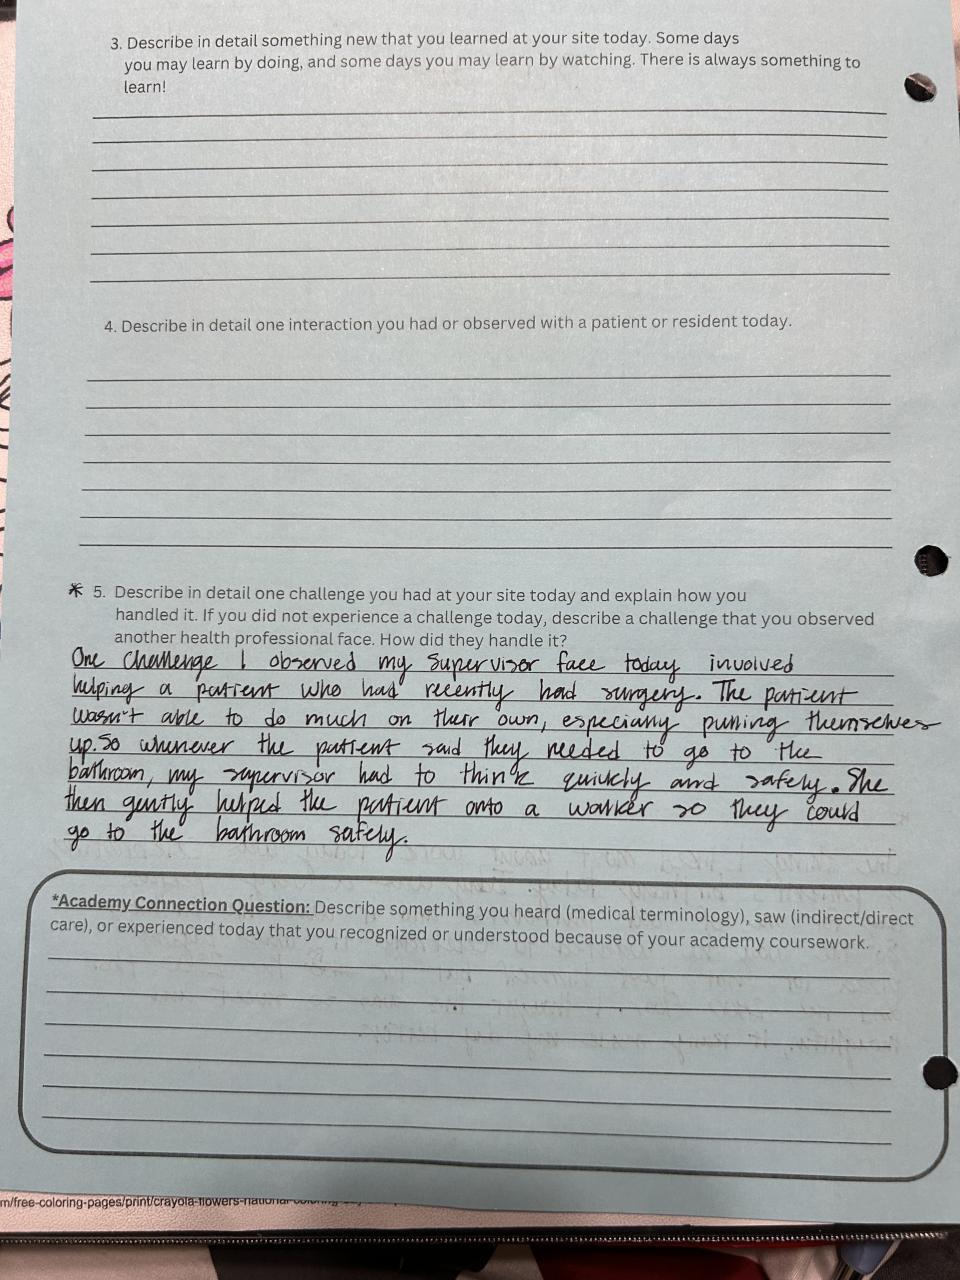 3. Describe in detail something new that you learned at your site today. Some days
you may learn by doing, and some days you may learn by watching. There is always something to
learn!
4. Describe in detail one interaction you had or observed with a patient or resident today.
* 5. Describe in detail one challenge you had at your site today and explain how you
handled it. If you did not experience a challenge today, describe a challenge that you observed
another health professional face. How did they handle it?
One challenge I observed my supervisor face today involved
helping a patient who had recently had surgery. The patient
wasn't able to do much on their own, especially pulling themselves
up. So whenever the patient said they needed to go to the
bathroom, my supervisor had to think quickly and safely. She
then gently helped the patient onto a walker so they could
go to the bathroom safely.
*Academy Connection Question: Describe something you heard (medical terminology), saw (indirect/direct
care), or experienced today that you recognized or understood because of your academy coursework.
m/free-coloring-pages/print/crayola-flowers-national-